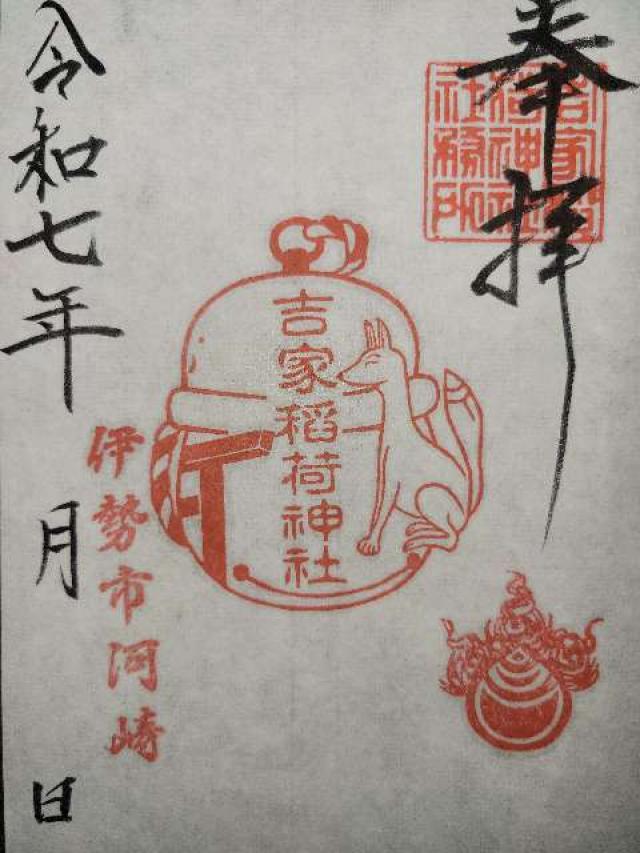 奉拝
吉家稲荷神社社務所
吉家稲荷神社
伊勢市河崎
令和七年 月 日